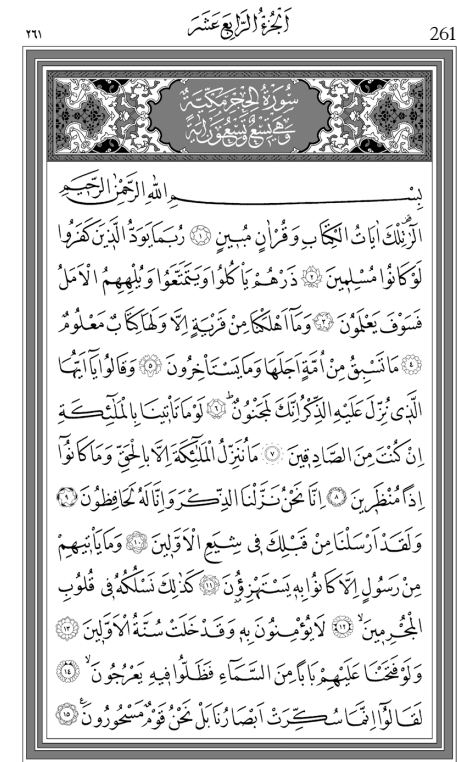 ٢٦١ اَلْجُزْءُ الرَّابِعَ عَشَرَ 261
سُورَةُ الْحِجْرِ مَكِّيَّةٌ
وَهِيَ تِسْعٌ وَتِسْعُونَ اٰيَةً
بِسْمِ اللّٰهِ الرَّحْمٰنِ الرَّحِيمِ
الٓرٰ تِلْكَ اٰيَاتُ الْكِتَابِ وَقُرْاٰنٍ مُبِينٍ ﴿١﴾ رُبَمَا يَوَدُّ الَّذِينَ كَفَرُوا
لَوْ كَانُوا مُسْلِمِينَ ﴿٢﴾ ذَرْهُمْ يَأْكُلُوا وَيَتَمَتَّعُوا وَيُلْهِهِمُ الْاَمَلُ
فَسَوْفَ يَعْلَمُونَ ﴿٣﴾ وَمَٓا اَهْلَكْنَا مِنْ قَرْيَةٍ اِلَّا وَلَهَا كِتَابٌ مَعْلُومٌ
﴿٤﴾ مَا تَسْبِقُ مِنْ اُمَّةٍ اَجَلَهَا وَمَا يَسْتَأْخِرُونَ ﴿٥﴾ وَقَالُوا يَٓا اَيُّهَا
الَّذِي نُزِّلَ عَلَيْهِ الذِّكْرُ اِنَّكَ لَمَجْنُونٌۜ ﴿٦﴾ لَوْ مَا تَأْتِينَا بِالْمَلٰٓئِكَةِ
اِنْ كُنْتَ مِنَ الصَّادِقِينَ ﴿٧﴾ مَا نُنَزِّلُ الْمَلٰٓئِكَةَ اِلَّا بِالْحَقِّ وَمَا كَانُٓوا
اِذًا مُنْظَرِينَ ﴿٨﴾ اِنَّا نَحْنُ نَزَّلْنَا الذِّكْرَ وَاِنَّا لَهُ لَحَافِظُونَ ﴿٩﴾
وَلَقَدْ اَرْسَلْنَا مِنْ قَبْلِكَ فِي شِيَعِ الْاَوَّلِينَ ﴿١٠﴾ وَمَا يَأْتِيهِمْ
مِنْ رَسُولٍ اِلَّا كَانُوا بِهِ يَسْتَهْزِؤُ۫نَ ﴿١١﴾ كَذٰلِكَ نَسْلُكُهُ فِي قُلُوبِ
الْمُجْرِمِينَۙ ﴿١٢﴾ لَا يُؤْمِنُونَ بِهِ وَقَدْ خَلَتْ سُنَّةُ الْاَوَّلِينَ ﴿١٣﴾
وَلَوْ فَتَحْنَا عَلَيْهِمْ بَابًا مِنَ السَّمَٓاءِ فَظَلُّوا فِيهِ يَعْرُجُونَۙ ﴿١٤﴾
لَقَالُٓوا اِنَّمَا سُكِّرَتْ اَبْصَارُنَا بَلْ نَحْنُ قَوْمٌ مَسْحُورُونَ۟ ﴿١٥﴾